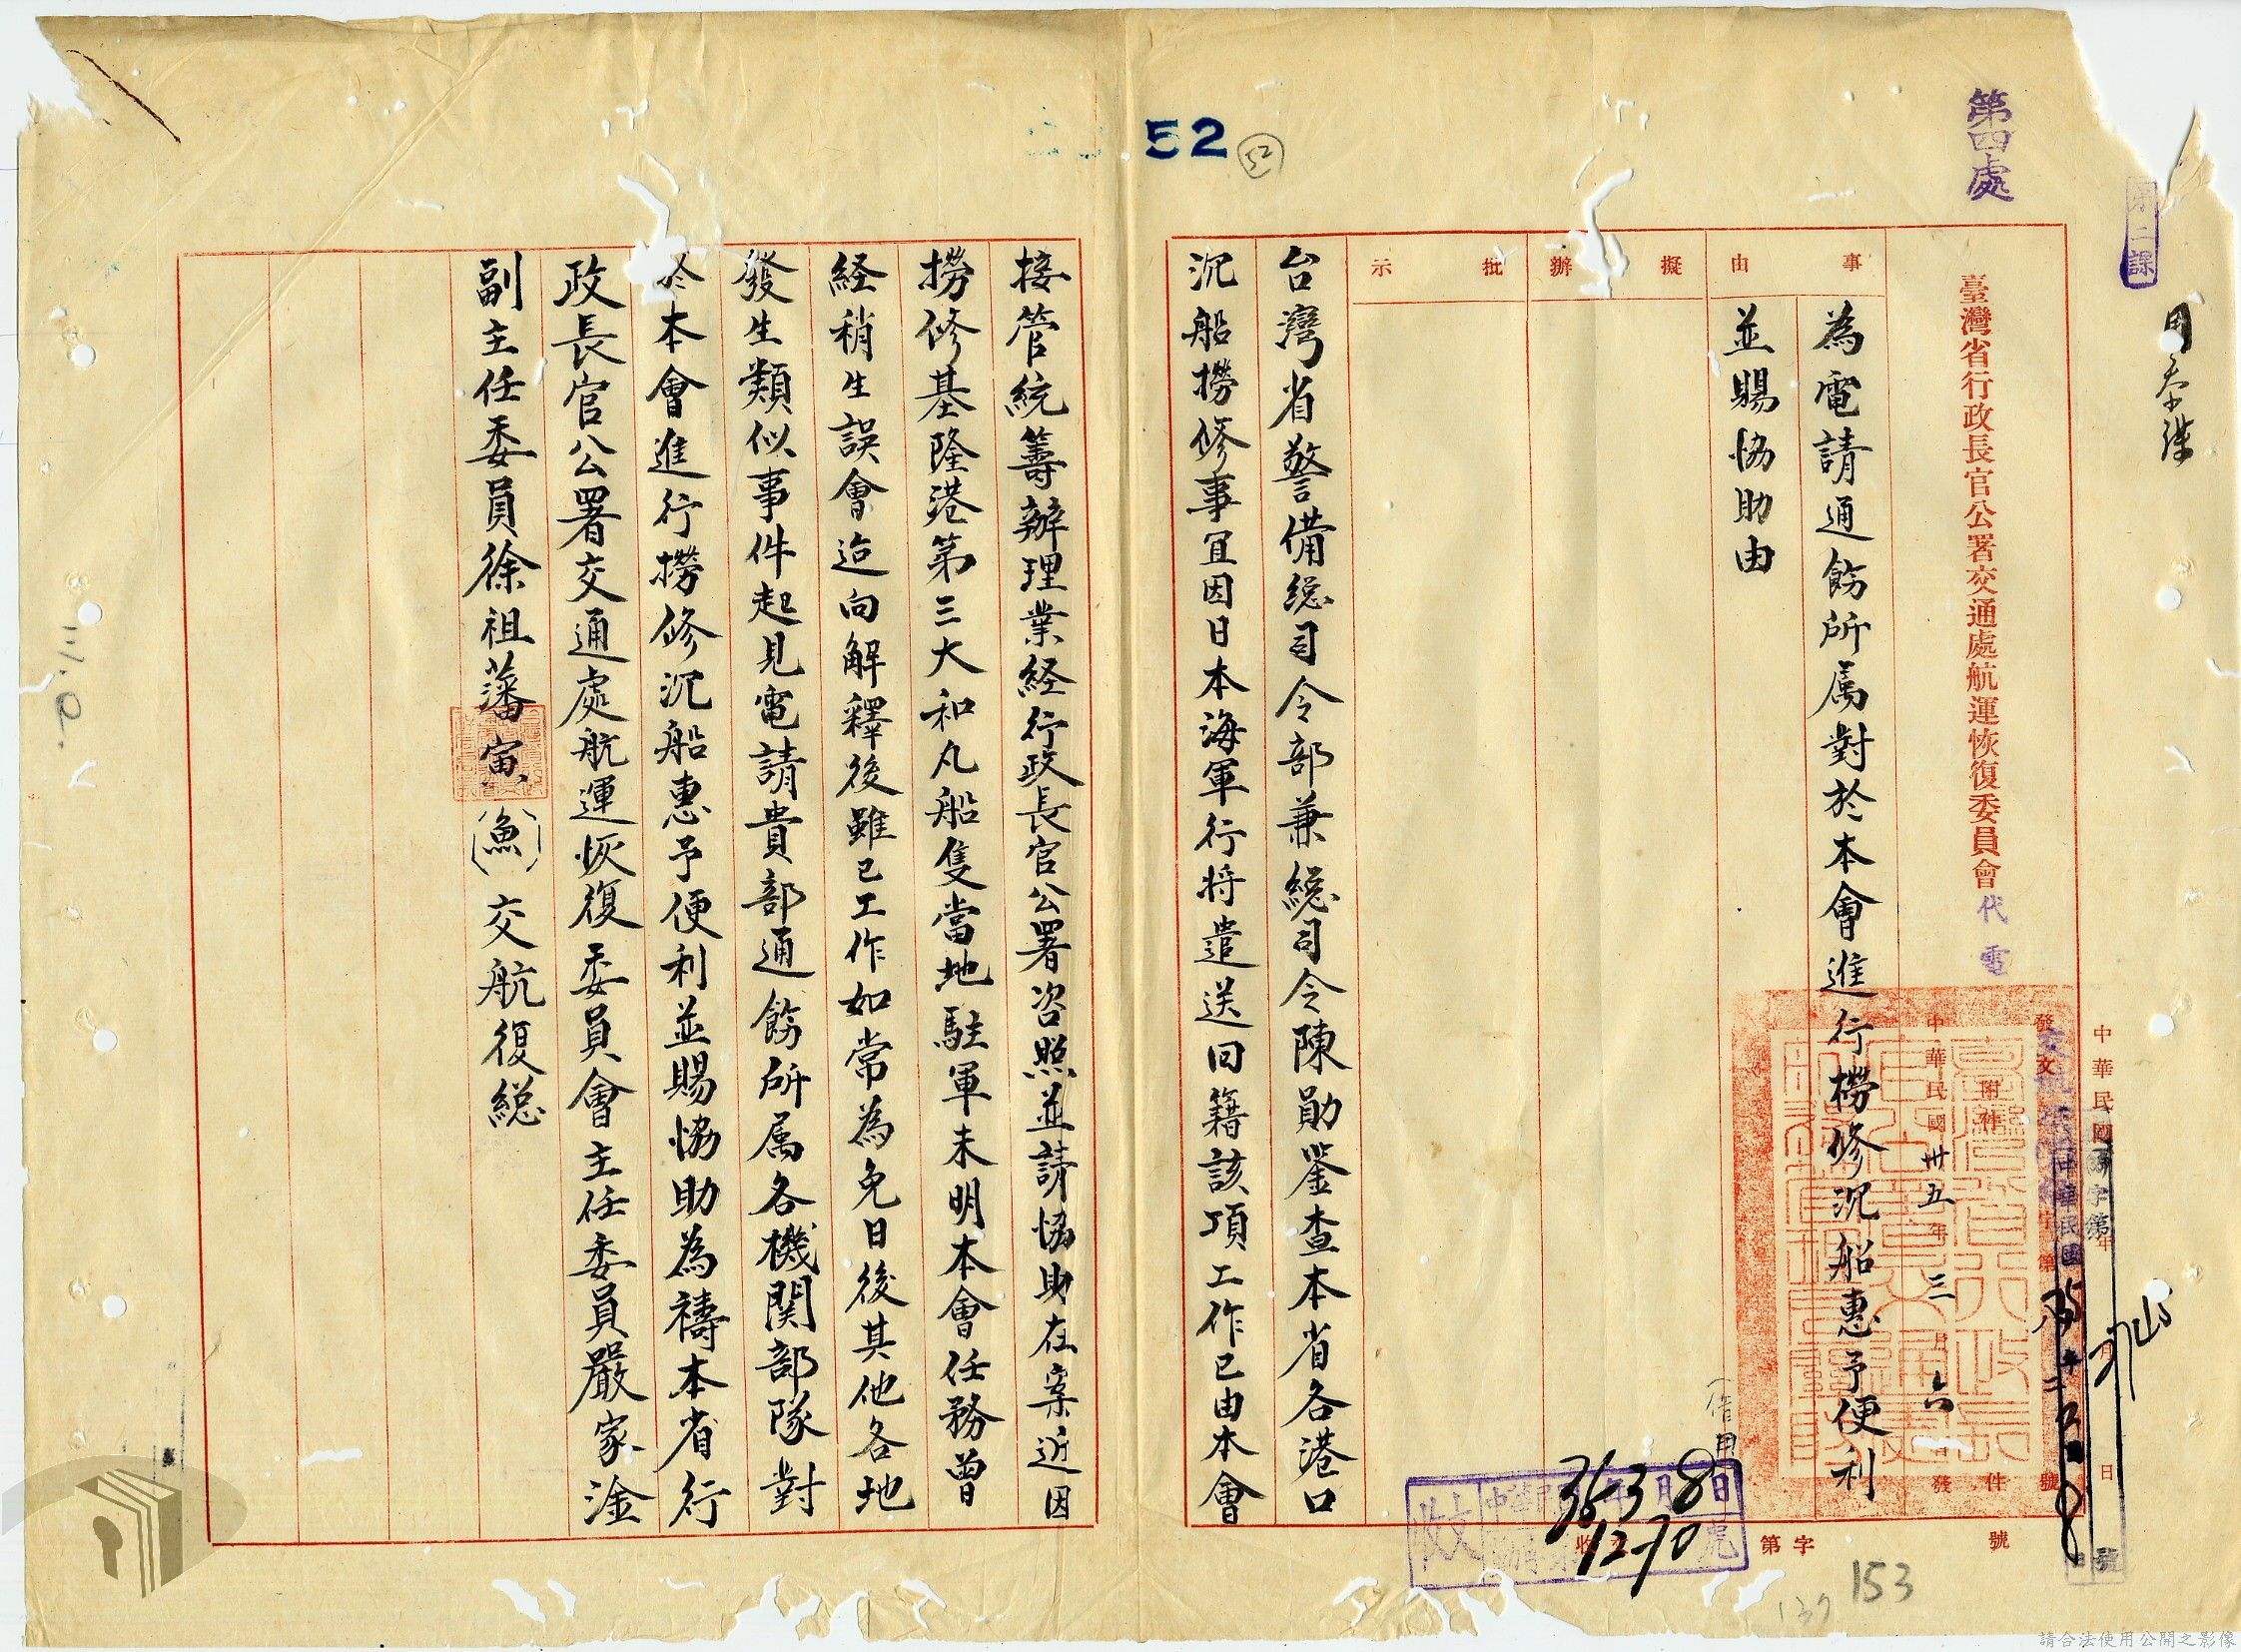 第四處
第二課
52
52
中華民國 年 月 日
發文 字第 號
附件 件
中華民國卅五年三月六日發
臺灣省行政長官公署交通處航運恢復委員會代電
事由
為電請通飭所属對於本會進行撈修沉船惠予便利
並賜恊助由
擬辦
批示
台灣省警備総司令部兼総司令陳勛鑒查本省各港口
沉船撈修事宜因日本海軍行将遣送回籍該項工作已由本會
收文 字第 號
(借用)
收文
3538
1270
153
137
接管統籌辦理業経行政長官公署咨照並請恊助在案近因
撈修基隆港第三大和丸船隻當地駐軍未明本會任務曾
経稍生誤會迨向解釋後雖已工作如常為免日後其他各地
發生類似事件起見電請貴部通飭所属各機関部隊對
於本會進行撈修沉船惠予便利並賜恊助為禱本省行
政長官公署交通處航運恢復委員會主任委員嚴家淦
副主任委員徐祖藩寅(魚)交航復総
請合法使用公開之影像